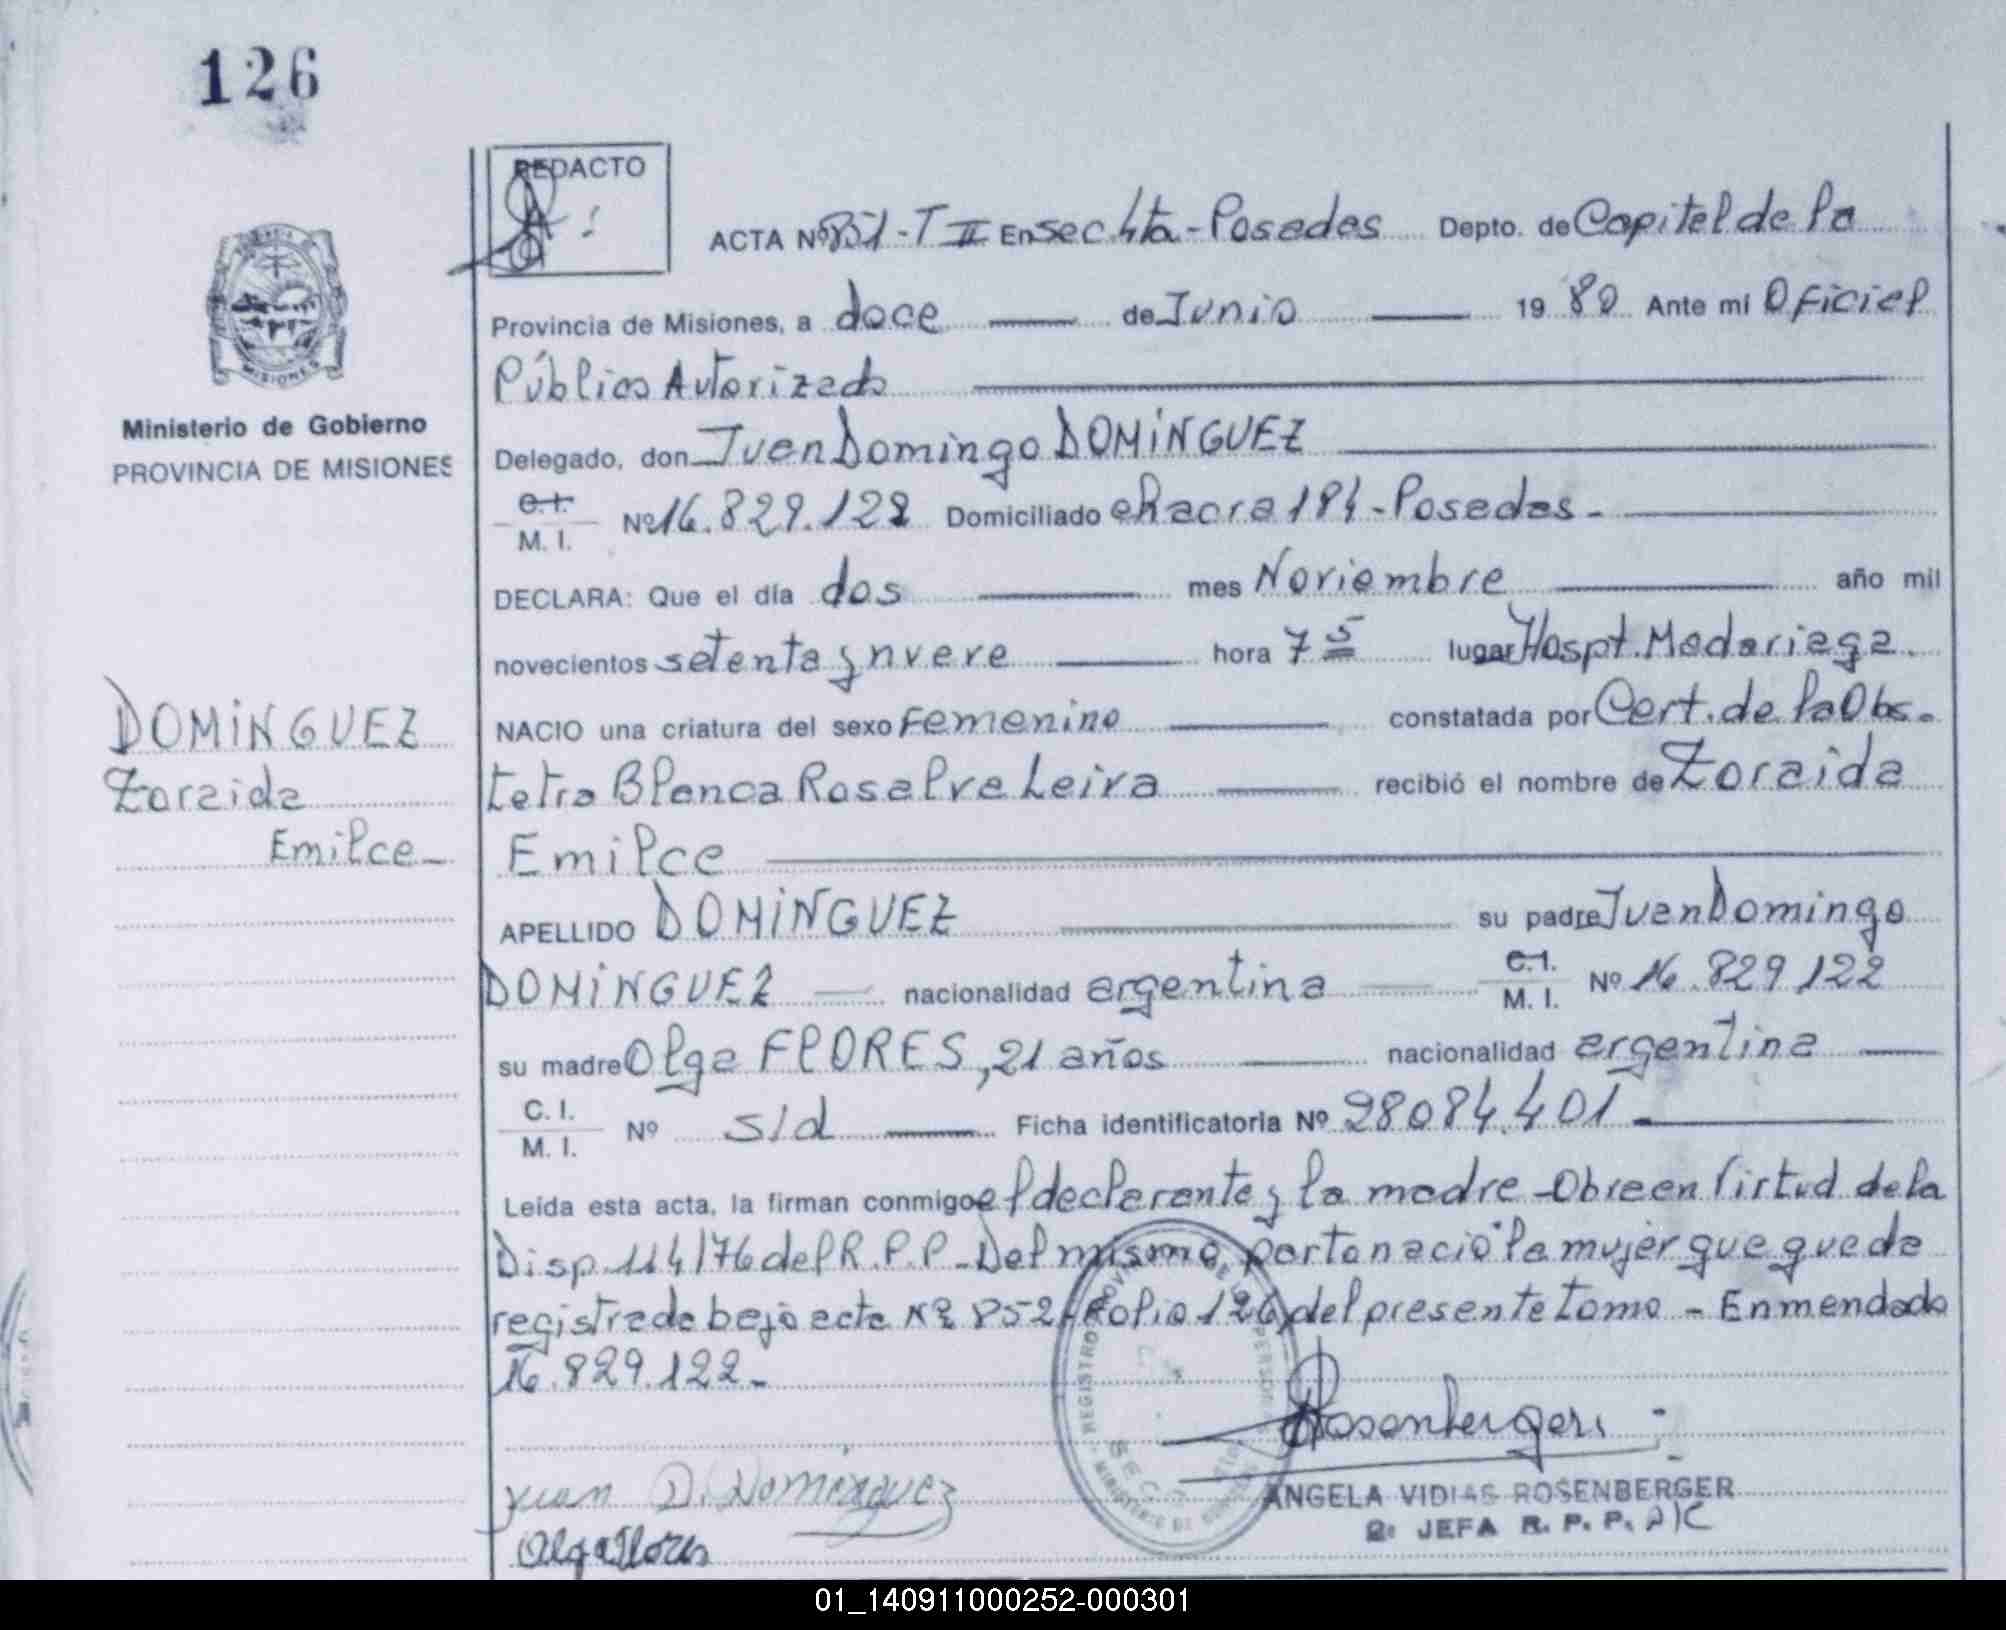 126
REDACTO
ACTA Nº 851 - T II En Secc. 4ta - Posadas Depto. de Capital de la
Provincia de Misiones, a doce de Junio 19 80 Ante mi Oficial
Público Autorizado
Ministerio de Gobierno
PROVINCIA DE MISIONES
Delegado, don Juan Domingo DOMINGUEZ
C.I. M. I. Nº 16.829.122 Domiciliado chacra 184 - Posadas -
DECLARA: Que el día dos mes Noviembre año mil
novecientos setenta y nueve hora 7 5 lugar Hospt. Madariaga.
DOMINGUEZ
Zoraida
Emilce -
NACIO una criatura del sexo Femenino constatada por Cert. de la Obs-
tetra Blanca Rosa Leiva recibió el nombre de Zoraida
Emilce
APELLIDO DOMINGUEZ su padre Juan Domingo
DOMINGUEZ nacionalidad argentina C.I. M. I. Nº 16.829.122
su madre Olga FLORES, 21 años nacionalidad argentina
C. I. M. I. Nº s/d Ficha identificatoria Nº 28084.401 -
Leída esta acta, la firman conmigo el declarante y la madre - Obre en Virtud de la
Disp. 114/76 del R.P.P. - Del mismo parto nació la mujer que queda
registrada bajo acta Nº 852 Folio 126 del presente tomo - Enmendado
16.829.122 -
Rosenberger
Juan D. Dominguez
ANGELA VIDIAS ROSENBERGER
2º JEFA R. P. P. A/C
Olga Flores
01_140911000252-000301